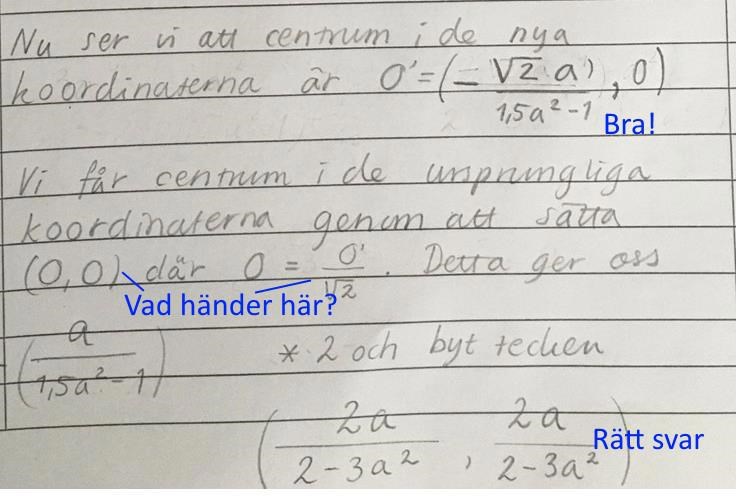 Nu ser vi att centrum i de nya
koordinaterna är O'=(-√2·a / 1,5a²-1, 0)
Bra!
Vi får centrum i de ursprungliga
koordinaterna genom att sätta
(O,O) där O = O'/√2. Detta ger oss
Vad händer här?
(a / 1,5a²-1) * 2 och byt tecken
(2a / 2-3a², 2a / 2-3a²)
Rätt svar